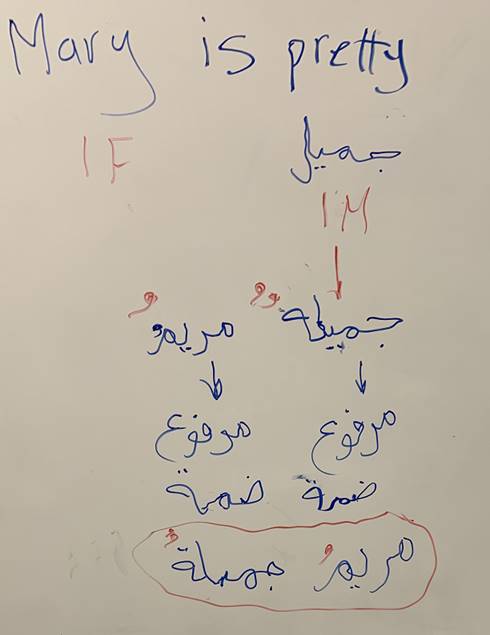 Mary is pretty
1F جميل
1M
جميلةٌ مريمُ
مرفوع مرفوع
ضمة ضمة
مريمُ جميلةٌ